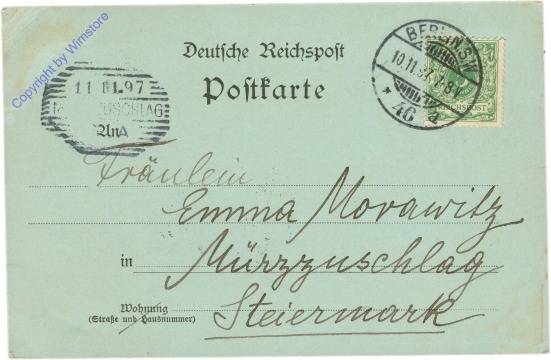 Copyright by Wimstore
Deutsche Reichspost
Postkarte
BERLIN S.W.
10.11.97. 7-8 V.
* 46 a
REICHSPOST
11 11.97
M ZUSCHLAG
Fräulein
Emma Morawitz
in Mürzzuschlag
Wohnung
(Straße und Hausnummer)
Steiermark